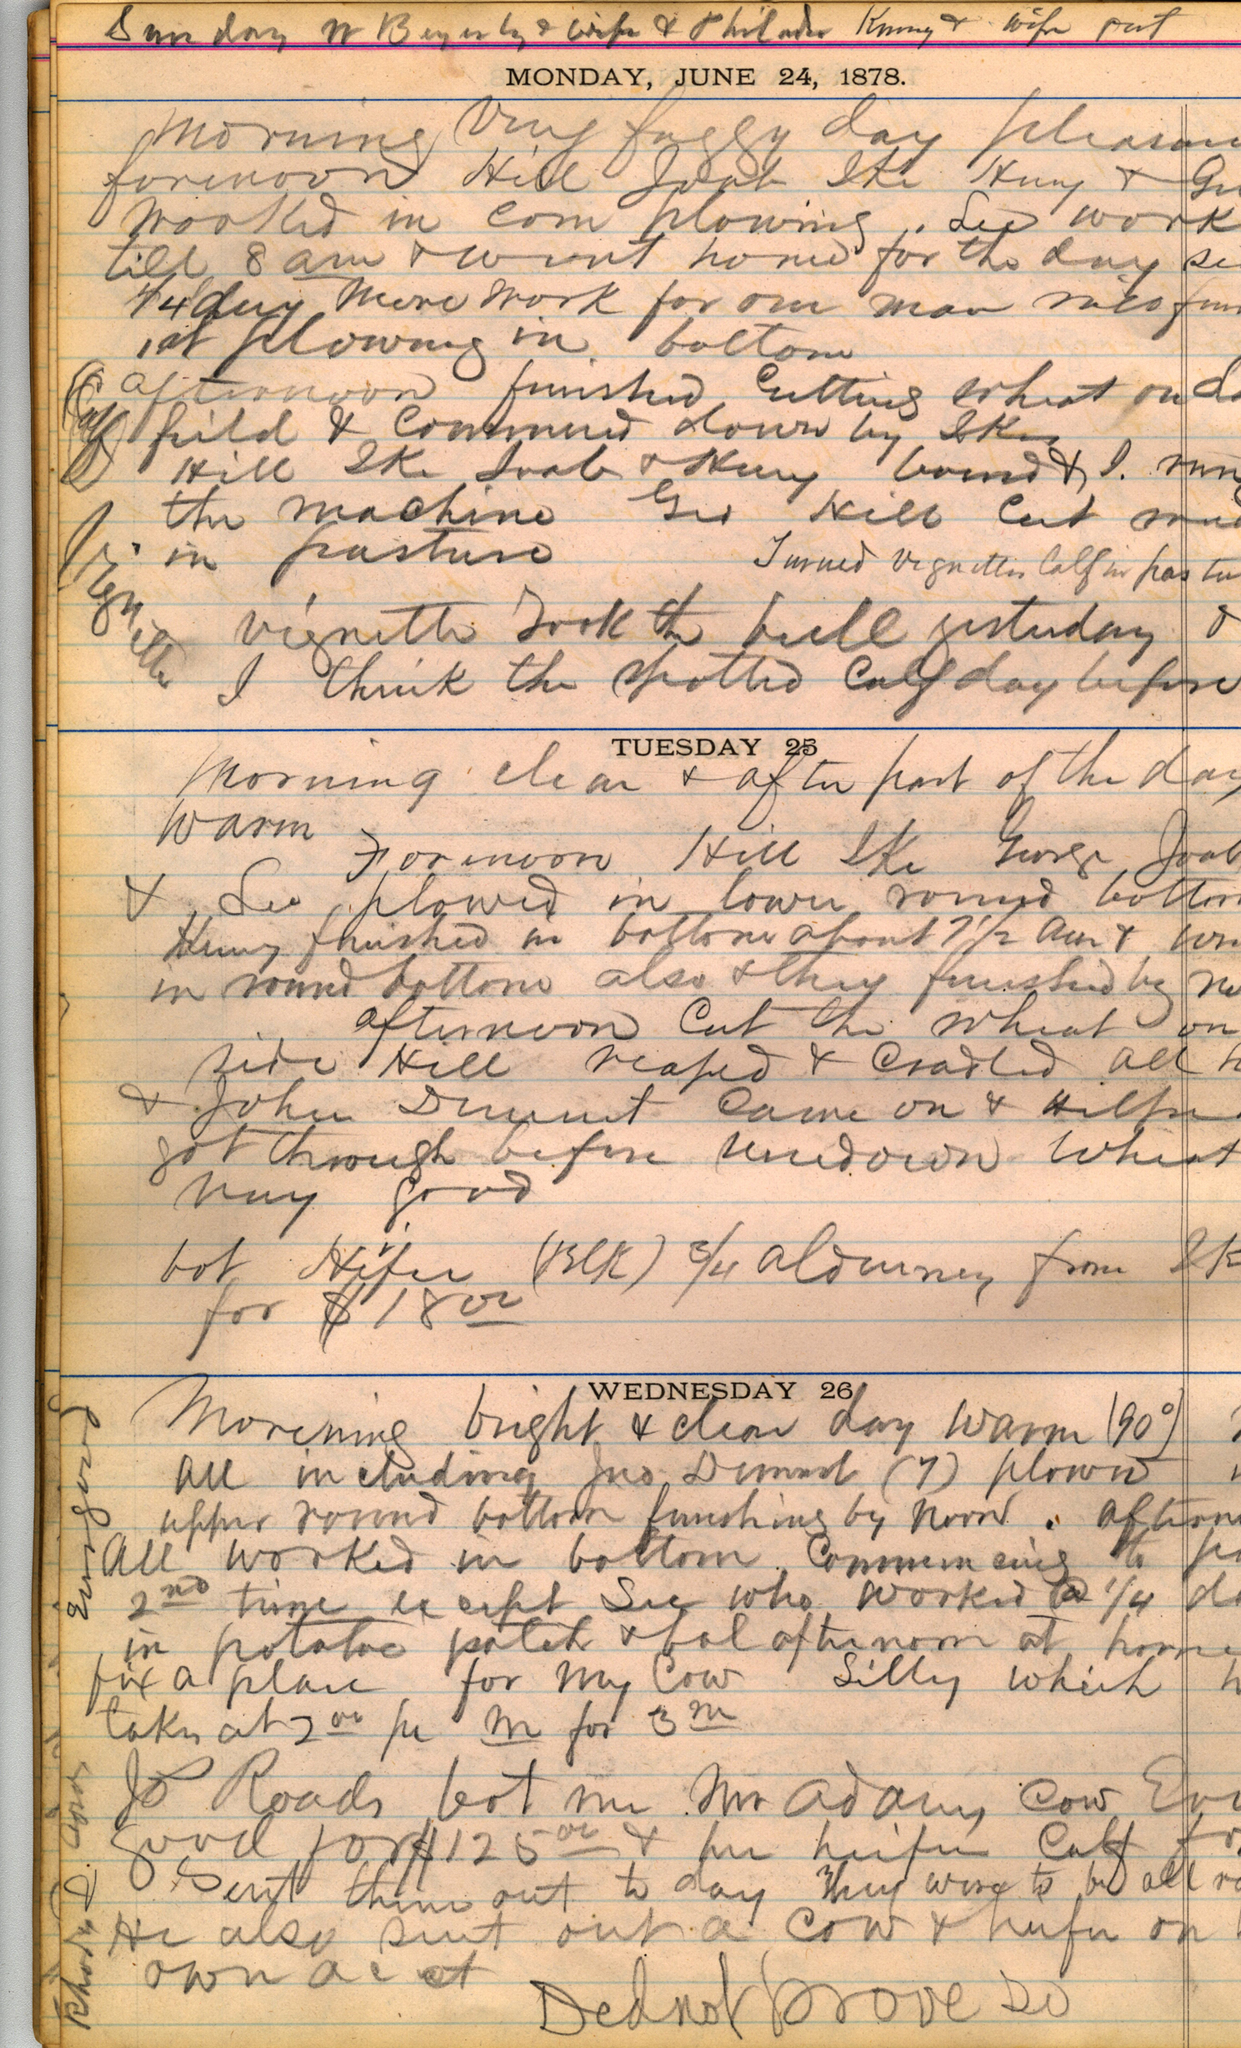 Sunday W Beyerly & wife & Philada Kenny & wife out
MONDAY, JUNE 24, 1878.
Morning Very foggy day pleasan
forenoon Hill Joab Ike Huny & Ge
worked in corn plowing. Lee work
till 8 am & went home for the day
1/4 day more work for one man
at plowing in bottom
Calf
afternoon finished cutting wheat on
field & commenced down by Ikes
Hill Ike Joab & Huny bound & I. run
the machine Geo Hill Cut
in pasture
Turned Vignettes Calf in pastu
Vignette
Vignette Took the bull yesterday &
I think the spotted Calf day before
TUESDAY 25
Morning clear & after part of the day
warm
Forenoon Hill Ike George Joab
& Lee plowed in lower round bottom
Huny finished in bottom about 7 1/2 am &
in round bottom also & they finished by
afternoon Cut the wheat on
side Hill reaped & Cradled all
& John Dumut Came on &
got through before sundown Wheat
very good
bot Hifer (Blk) 3/4 alderney from Ik
for $18 00
WEDNESDAY 26
Morening bright & clear day warm (90°)
All including Jno. Dumut (7) plowed
upper round bottom finishing by noon. aftern
All worked in bottom Commencing to
2nd time except Lee who worked 1/4 da
in potatoe patch & bal afternoon at home
fix a place for my Cow Silly which
takes at 2 00 per m for 3 m
Evergood
Jo Roads bot me Mr Adams Cow Eve
good for $125 00 & her heifer Calf for
Sent them out to day They were to be all
He also sent out a Cow & heifer on
own acct
Did not prove so
Rhoda D.